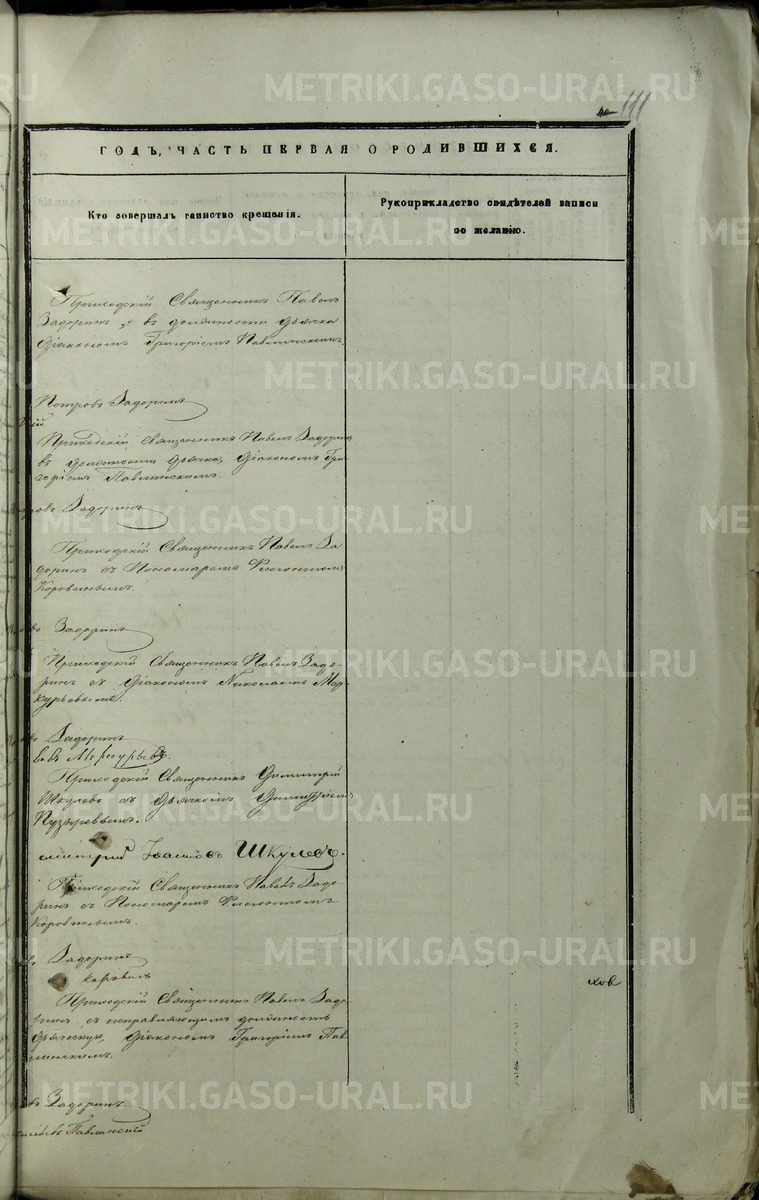 METRIKI.GASO-URAL.RU
111
ГОДЪ, ЧАСТЬ ПЕРВАЯ О РОДИВШИХСЯ.
Кто совершалъ таинство крещенія.
Рукоприкладство свидѣтелей записи
по желанію.
Приходскій Священникъ Павелъ
Задоринъ, въ должности дьячка
Діакономъ Григоріемъ Павлинскимъ.
Петровъ Задоринъ
Приходскій Священникъ Павелъ Задоринъ
въ должности дьячка, Діакономъ Гри-
горіемъ Павлинскимъ.
Задоринъ
Приходскій Священникъ Павелъ За-
доринъ съ Пономаремъ
Коровинымъ.
Задоринъ
Приходскій Священникъ Павелъ Задо-
ринъ съ Діакономъ Николаемъ Мер-
курьевымъ.
Задоринъ
Меркурьевъ.
Приходскій Священникъ Димитрій
Шкулевъ съ Дьячкомъ
Пузыревымъ.
Ивановъ Шкулевъ.
Приходскій Священникъ Павелъ Задо-
ринъ съ Пономаремъ
Коровинымъ.
Задоринъ
Приходскій Священникъ Павелъ Задо-
ринъ съ исправляющимъ должность
дьяческую, Діакономъ Григоріемъ Пав-
линскимъ.
Задоринъ
Павлинскій